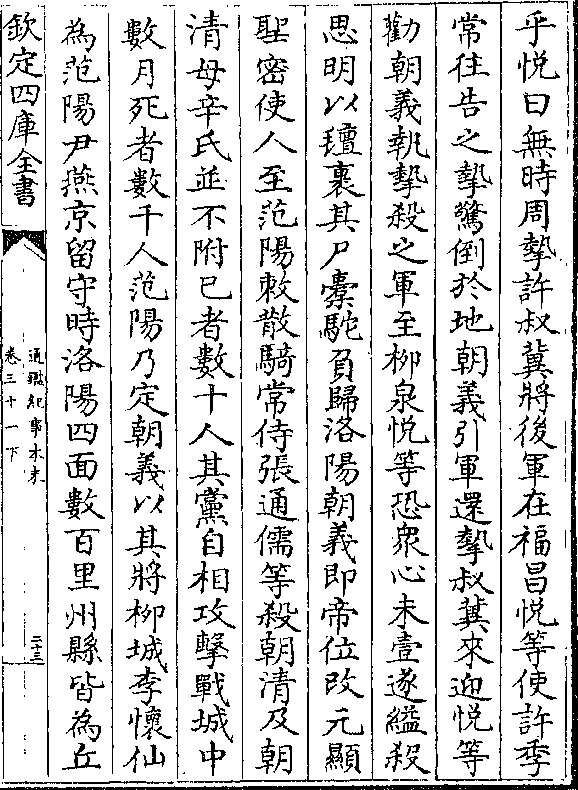 乎悅曰無時周摯許叔冀將後軍在福昌悅等使許季
常往告之摯驚倒於地朝義引軍還摯叔冀來迎悅等
勸朝義執摯殺之軍至柳泉悅等恐衆心未壹遂縊殺
思明以氊裹其尸槖駝負歸洛陽朝義即帝位改元顯
聖密使人至范陽敕散騎常侍張通儒等殺朝清及朝
清母辛氏並不附已者數十人其黨自相攻擊戰城中
數月死者數千人范陽乃定朝義以其將柳城李懷仙
為范陽尹燕京留守時洛陽四面數百里州縣皆為丘
欽定四庫全書
通鑑紀事本末
卷三十一下
二十三